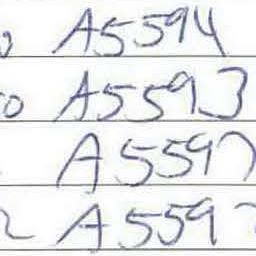 0 A5594
0 A5593
A5597
2 A559